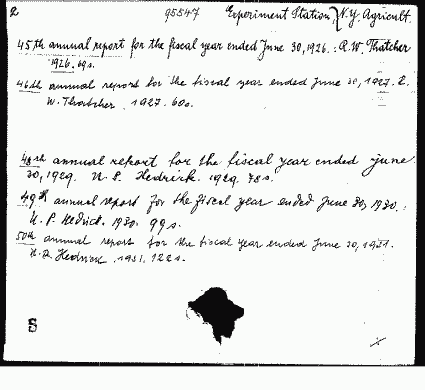 2 95547 Experiment Station, N.Y. Agricult.
45th annual report for the fiscal year ended June 30, 1926. : R.W. Thatcher
1926. 69s.
46th annual report for the fiscal year ended June 30, 1927. R.
W. Thatcher. 1927. 60s.
48th annual report for the fiscal year ended June
30, 1929. U. P. Hedrick. 1929. 78s.
49th annual report for the fiscal year ended June 30, 1930. :
U. P. Hedrick. 1930. 99s.
50th annual report for the fiscal year ended June 30, 1931.
Hedrick. 1931. 122s.
S